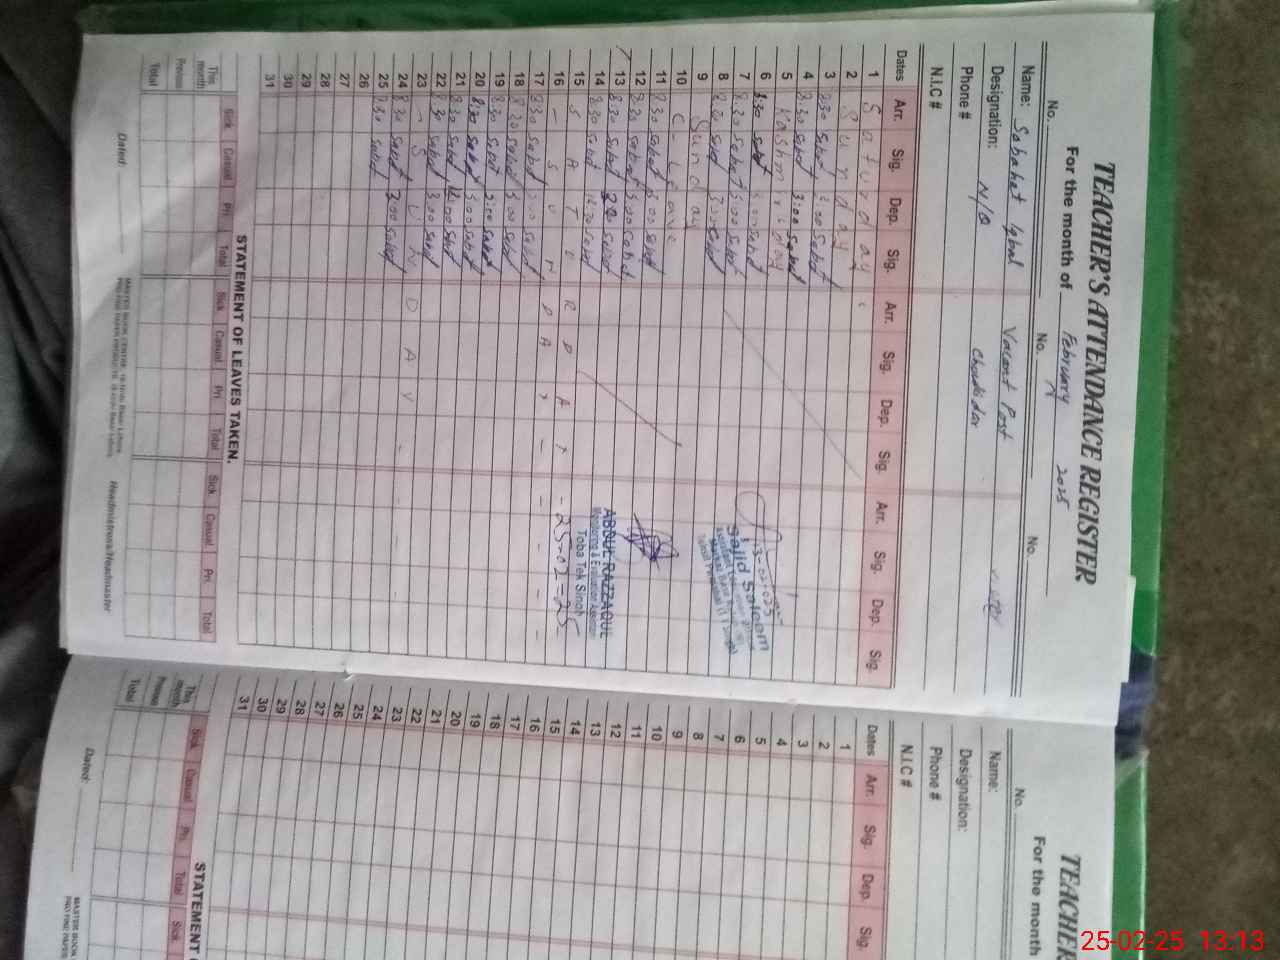 TEACHER'S ATTENDANCE REGISTER
For the month of February 2025
No. No. No.
Name: Sabahat Iqbal Vacant Post
Designation: N/Q Chowkidar
Phone #
N.I.C #
Dates Arr. Sig. Dep. Sig. Arr. Sig. Dep. Sig. Arr. Sig. Dep. Sig.
1 Saturday
2 Sunday
3 8:30 Sabat 3:00 Sabat
4 8:30 Sabat 3:00 Sabat
5 Kashmir day
6 8:30 Sabat 3:00 Sabat
7 8:30 Sabat 3:00 Sabat
8 8:30 Sabat 3:00 Sabat
9 Sunday
10 C-Leave
11 8:30 Sabat 3:00 Sabat
12 8:30 Sabat 3:00 Sabat
13 8:30 Sabat Sabat
14 8:30 Sabat Sabat
15 SATURDAY
16 SUNDAY
17 8:30 Sabat 3:00 Sabat
18 8:30 Sabat 3:00 Sabat
19 8:30 Sabat 3:00 Sabat
20 8:30 Sabat 3:00 Sabat
21 8:30 Sabat 12:00 Sabat
22 8:30 Sabat 3:00 Sabat
23 SUNDAY
24 8:30 Sabat 3:00 Sabat
25 8:30 Sabat
26
27
28
29
30
31
13-02-2025
Sajid Saleem
ABDUL RAZZAQUE
Monitoring & Evaluation Assistant
Toba Tek Singh
25-02-25
STATEMENT OF LEAVES TAKEN.
Sick Casual Pri Total Sick Casual Pri Total Sick Casual Pri Total
This month
Previous
Total
Dated: Headmistress/Headmaster
TEACHER
For the month
No.
Name:
Designation:
Phone #
N.I.C #
Dates Arr. Sig. Dep. Sig.
1
2
3
4
5
6
7
8
9
10
11
12
13
14
15
16
17
18
19
20
21
22
23
24
25
26
27
28
29
30
31
STATEMENT
Sick Casual Pri Total Sick
This month
Previous
Total
Dated:
MASTER BOOK
25-02-25 13:13